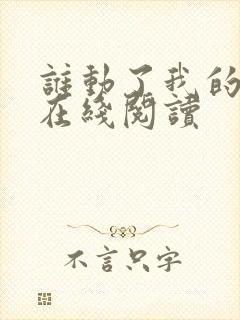 誰動了我的
在綫閱讀
不言只字